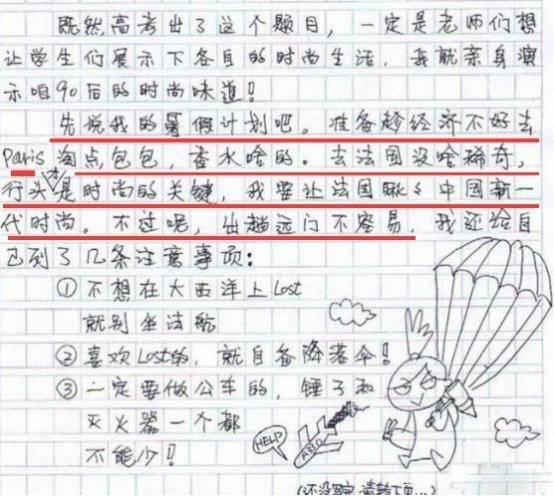 既然高考出了这个题目，一定是老师们想
让学生们展示下各自的时尚生活，我就亲身演
示咱90后的时尚味道！
先说我的暑假计划吧。准备趁经济不好去
Paris淘点包包，香水啥的。去法国没啥稀奇，
行头才是时尚的关键，我要让法国瞅瞅中国新一
代时尚。不过呢，出趟远门不容易，我还给自
己列了几条注意事项：
①不想在大西洋上Lost
就别坐法航
②喜欢Lost的，就自备降落伞！
③一定要做公车的，锤子和
灭火器一个都
不能少！
HELP
A330
(还没写完,请转下页...)